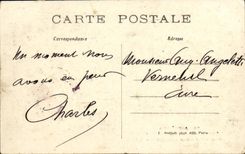 CARTE POSTALE
Correspondance
Un moment nous
avons eu peur
Charles
Monsieur Aug. Angelotti
Verneuil
Eure